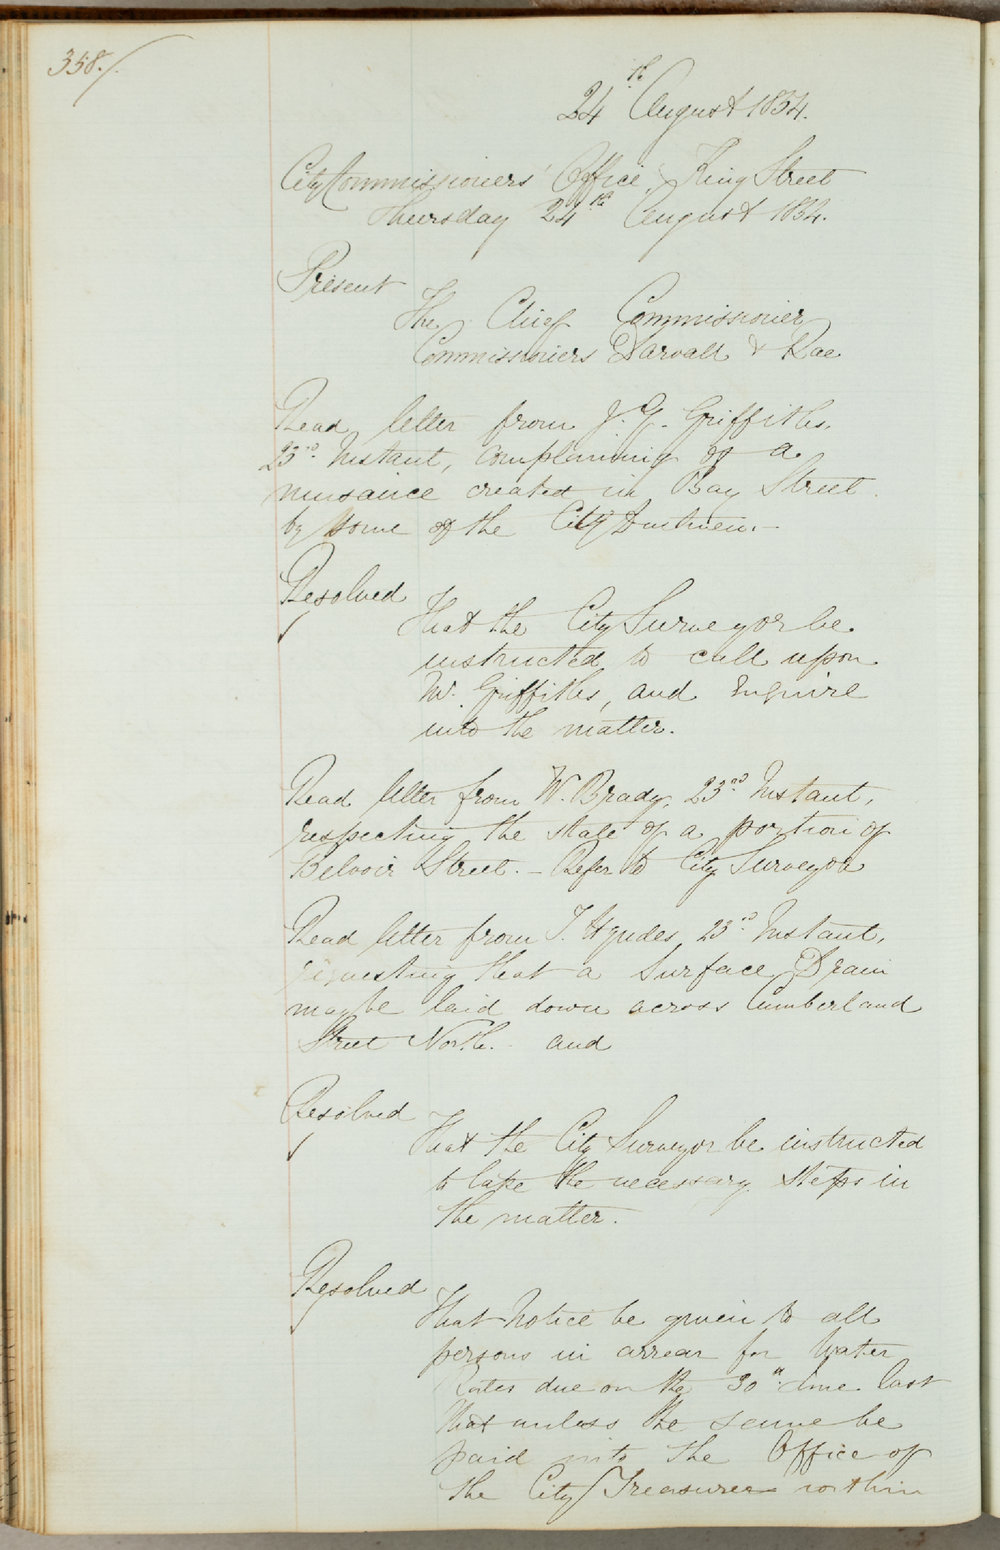 358./.
24th August 1854.
City Commissioners' Office, King Street
Thursday 24th August 1854.
Present
The Chief Commissioner
Commissioners Darvall & Rae
Read letter from J. G. Griffiths,
23rd. Instant, complaining of a
nuisance created in Bay Street
by some of the City Dustmen.-
Resolved
That the City Surveyor be
instructed to call upon
Mr. Griffiths, and enquire
into the matter.
Read letter from W. Brady, 23rd Instant,
respecting the state of a portion of
Belvoir Street. - Refer to City Surveyor
Read letter from T. Hyndes 23rd. Instant,
requesting that a Surface Drain
may be laid down across Cumberland
Street North. and
Resolved
That the City Surveyor be instructed
to take the necessary steps in
the matter.
Resolved
That Notice be given to all
persons in arrear for Water
Rates due on the 30th. June last
that unless the same be
paid into the Office of
the City Treasurer within